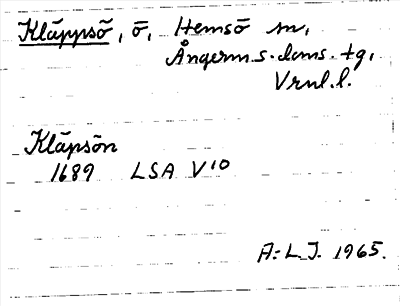 Kläppsö, ö, Hemsö sn,
Ångerm. s. doms. tg,
Vrnl. l.
Kläpsön
1689 LSA V10
A:L.J. 1965.